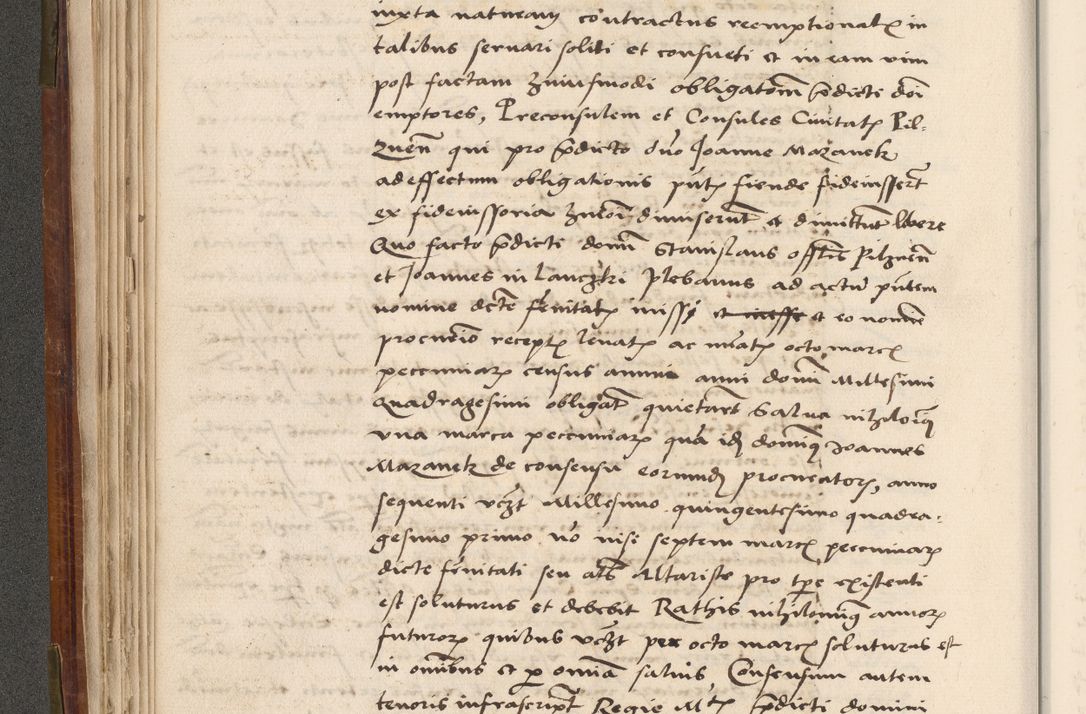 iuxta naturam contractus reemptionalis in
talibus servari soliti et consueti et in eam vim
post factam huiusmodi obligatom pdicti dni
emptores, Preconsulem et Consules Civitatis Pil-
znen qui pro pdicto dno Joanne Mazanek
ad effectum obligationis pntis fiende fideiussert
ex fideiussoria huiusmodi dimiserunt et dimittunt libere
Quo facto pdicti domini Stanislaus offlis Pilznen
et Joannes in Lanczkri Plebanus ad actum pntem
nomine dicte frnitatis missi et eo nomine
procurio receptis levatis ac nuatis octo marcis
peccuniarum census annui anni domini Millesimi
Quadragesimi obligat quietarunt Salva nihilominus
una marca peccuniarum qua idem dominus Joannes
Mazanek de consensu eorundem procuratorum, anno
sequenti vczt Millesimo quingentesimo quadra-
gesimo primo no nisi septem marcis peccuniarum
dicte frnitati seu ats Altariste pro tpe existenti
est soluturus et debebit Rathis nihilominus annorum
futurorum quibus vczt per octo marcis soluturus est
in omnibus et p omnia salvis Consensum autem
tenoris infrascript Regie Mtis pdicti domini